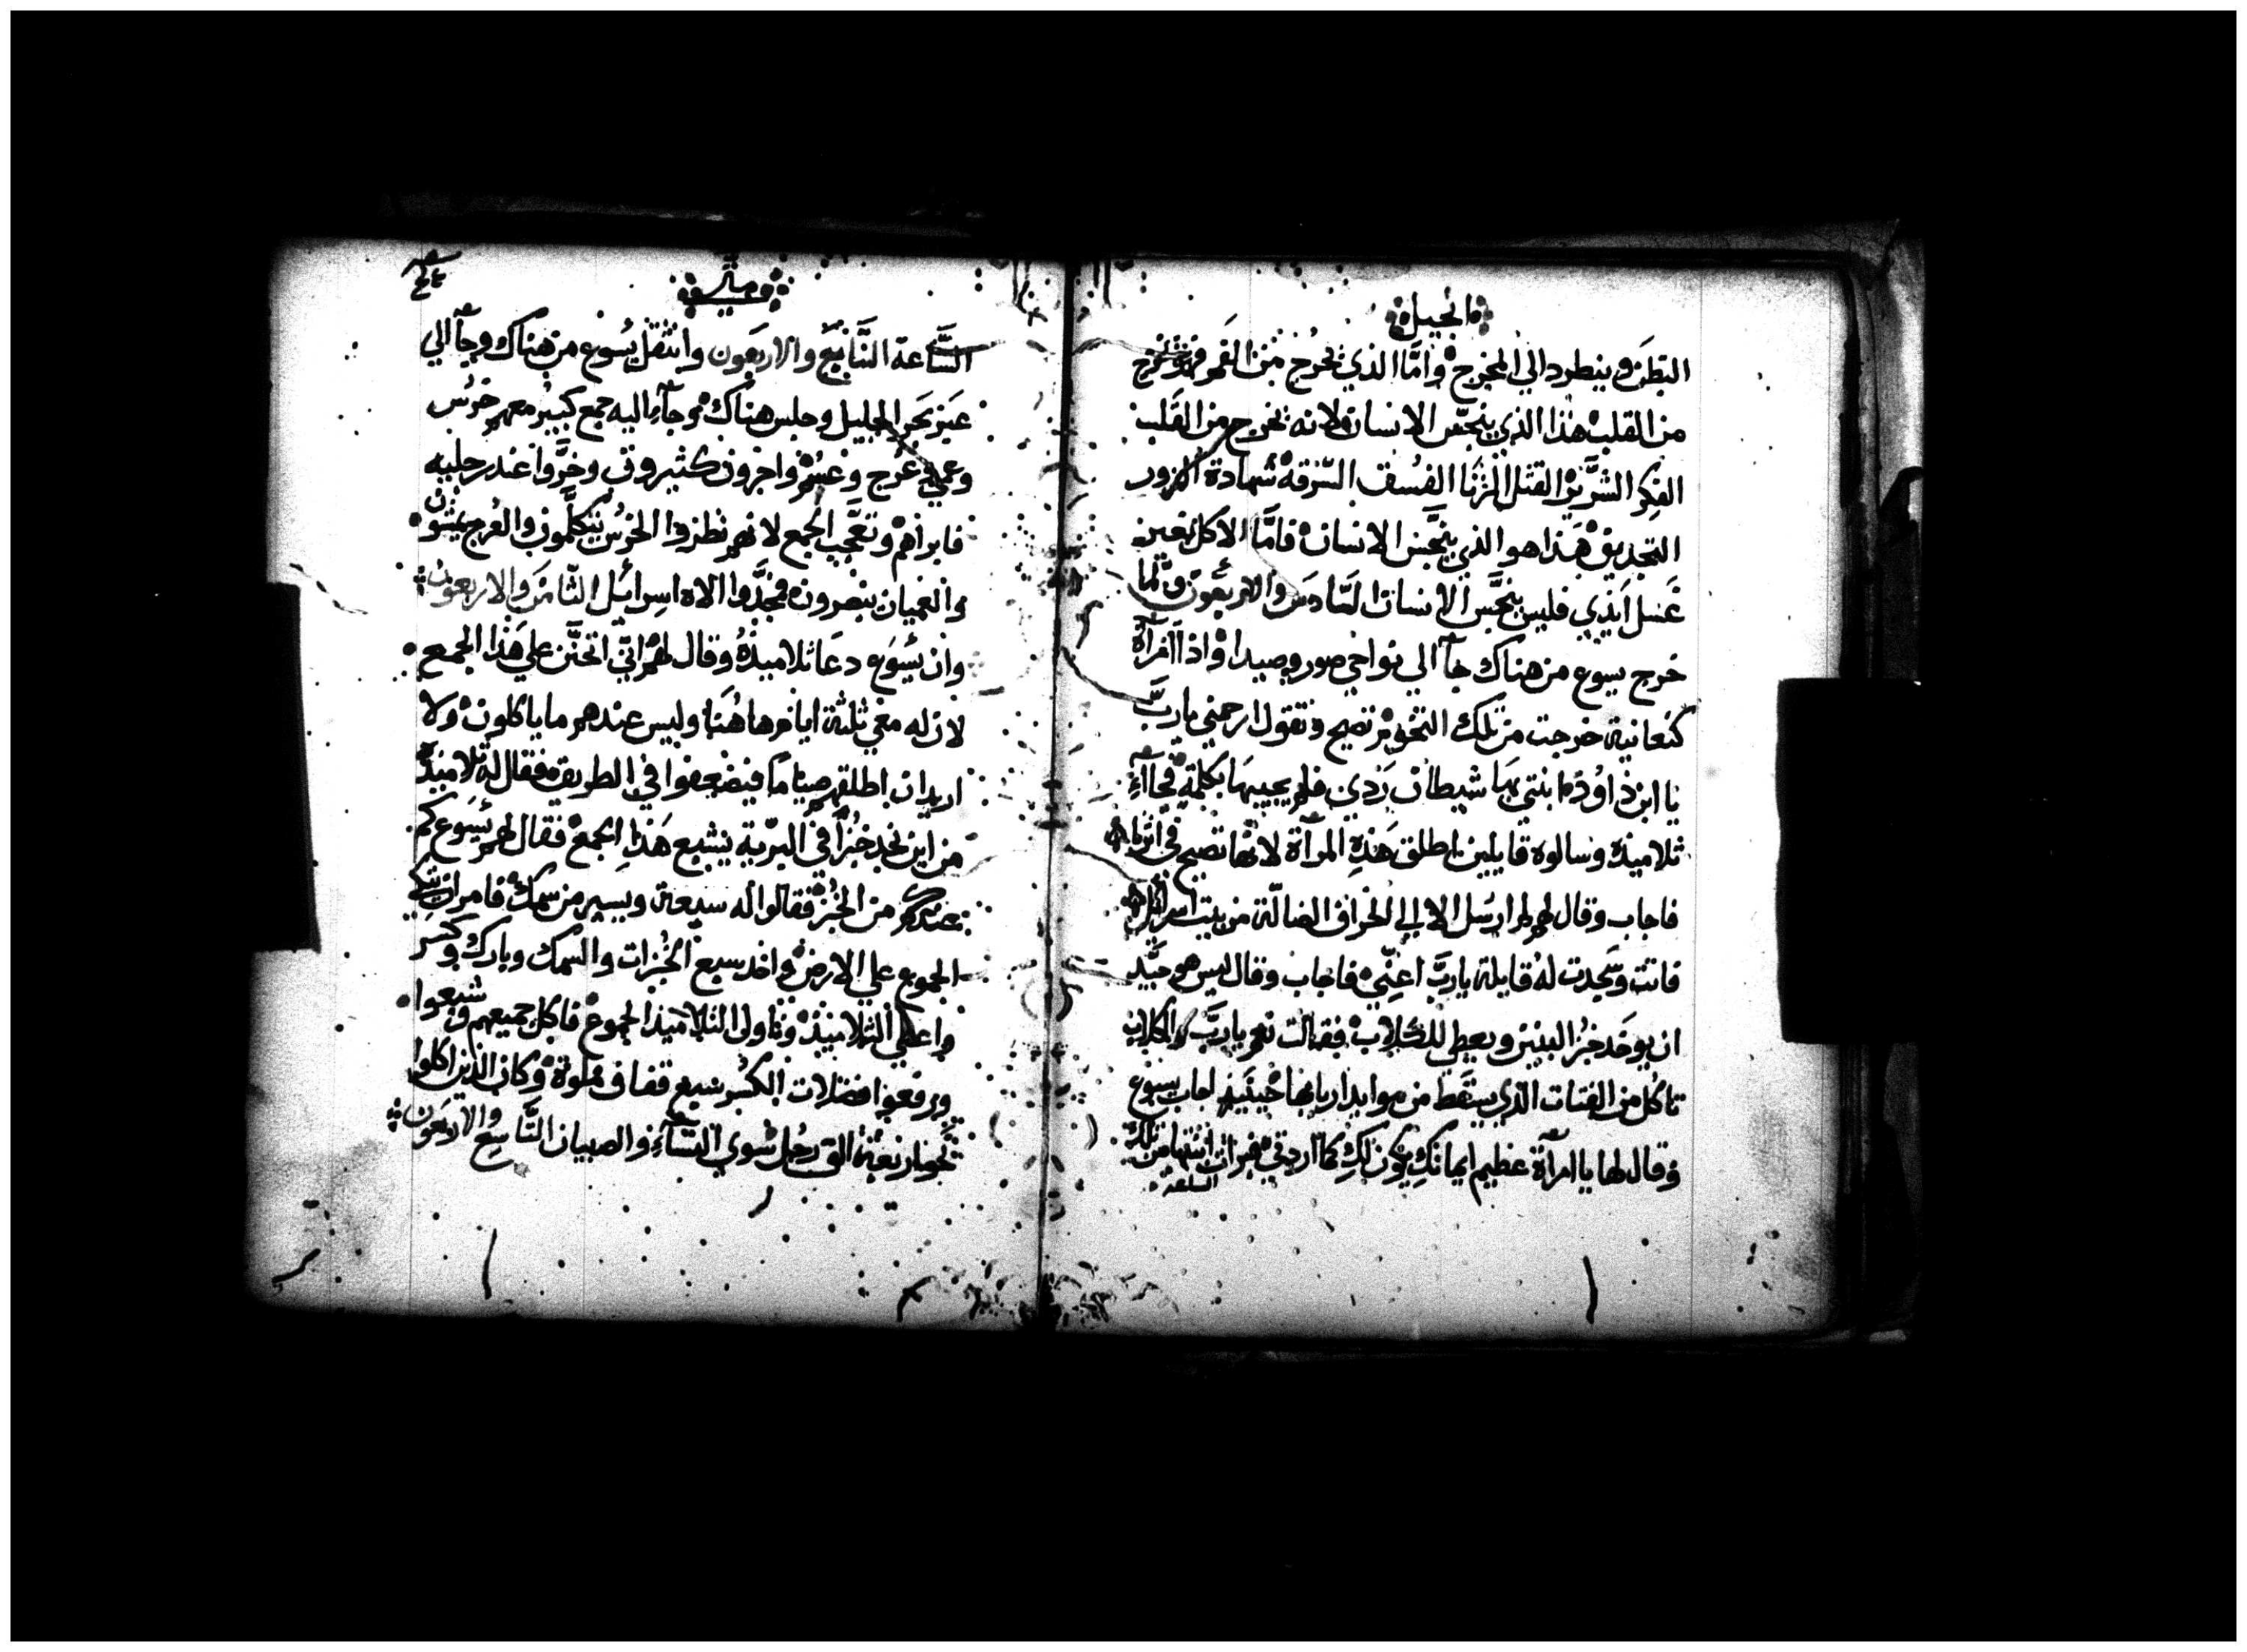 انجيل
البطن وينطرد الي المخرج واما الذي يخرج من الفم فهو يخرج
من القلب هذا الذي ينجس الانسان لانه يخرج من القلب
الفكر الشرير القتل الزنا الفسق السرقة شهادة الزور
التجديف هذا هو الذي ينجس الانسان فاما الاكل بغير
غسل ايدي فليس ينجس الانسان السادس والاربعون ولما
خرج يسوع من هناك جآ الي نواحي صور وصيدا واذا امرآة
كنعانية خرجت من تلك التخوم تصيح وتقول ارحمني يا رب
يا ابن داود ابنتي بها شيطان ردي فلم يجيبها بكلمة فجاآء
تلاميذه وسالوه قايلين اطلق هذه المرآة لانها تصيح في اثرنا
فاجاب وقال لهم لم ارسل الا الي الخراف الضالة من بيت اسرائيل
فاتت وسجدت له قايلة يا رب اعني فاجاب وقال ليس هو جيد
ان يوخد خبز البنين ويعطي للكلاب فقالت نعم يا رب والكلاب
تاكل من الفتات الذي يسقط من موايد اربابها حينيذ اجاب يسوع
وقال لها يا امرآة عظيم ايمانك يكون لك كما اردتي فبرات ابنتها من تلك
الساعه
متي
الساعة السابع والاربعون وانتقل يسوع من هناك وجآ الي
عبر بحر الجليل وجلس هناك وجآء اليه جمع كبير معهم خرس
وعمي وعرج وعسم واخرون كثيرون وخروا عند رجليه
فابراهم وتعجب الجمع لانهم نظروا الخرس يتكلمون والعرج يمشون
والعميان يبصرون فمجدوا الاه اسرائيل الثامن والاربعون
وان يسوع دعا تلاميذه وقال لهم اني اتحنن علي هذا الجمع
لان له معي ثلثة ايام هاهنا وليس عندهم ما ياكلون ولا
اريد ان اطلقهم صياما فيضعفوا في الطريق فقال له تلاميذه
من اين نجد خبزا في البرية يشبع هذا الجمع فقال لهم يسوع كم
عندكم من الخبز فقالوا له سبعة ويسير من سمك فامر ان يتكي
الجموع علي الارض واخد سبع الخبزات والسمك وبارك وكسر
واعطي التلاميذ وناول التلاميذ الجموع فاكل جميعهم وشبعوا
ورفعوا فضلات الكسر سبع قفاف مملوة وكان الذين اكلوا
نحو اربعة الف رجل سوي النسآء والصبيان التاسع والاربعون